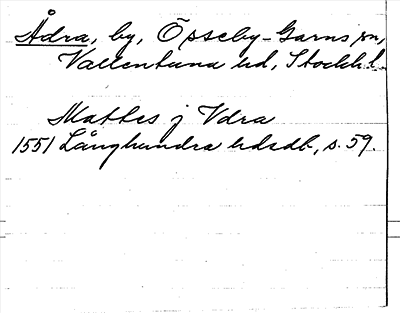 Ådra, by, Össeby-Garns sn,
Vallentuna hd, Stockh. l.
Mattes j Vdra
1551 Långhundra hdsdb, s. 59.